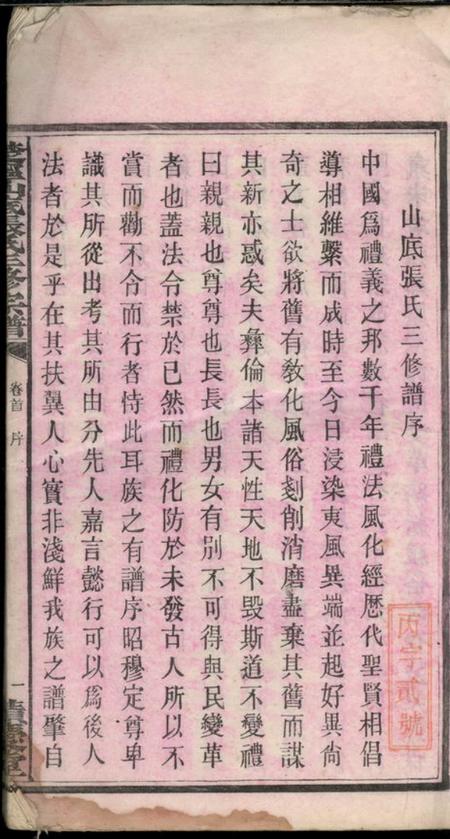 山底張氏三修譜序
中國爲禮義之邦數千年禮法風化經歷代聖賢相倡
導相維繫而成時至今日浸染夷風異端並起好異尙
奇之士欲將舊有敎化風俗剗削消磨盡棄其舊而謀
其新亦惑矣夫彝倫本諸天性天地不毀斯道不變禮
曰親親也尊尊也長長也男女有別不可得與民變革
者也蓋法令禁於已然而禮化防於未發古人所以不
賞而勸不令而行者恃此耳族之有譜序昭穆定尊卑
識其所從出考其所由分先人嘉言懿行可以爲後人
法者於是乎在其扶翼人心實非淺鮮我族之譜肇自
丙字貳號
山底張氏三修宗譜
卷首
序
一